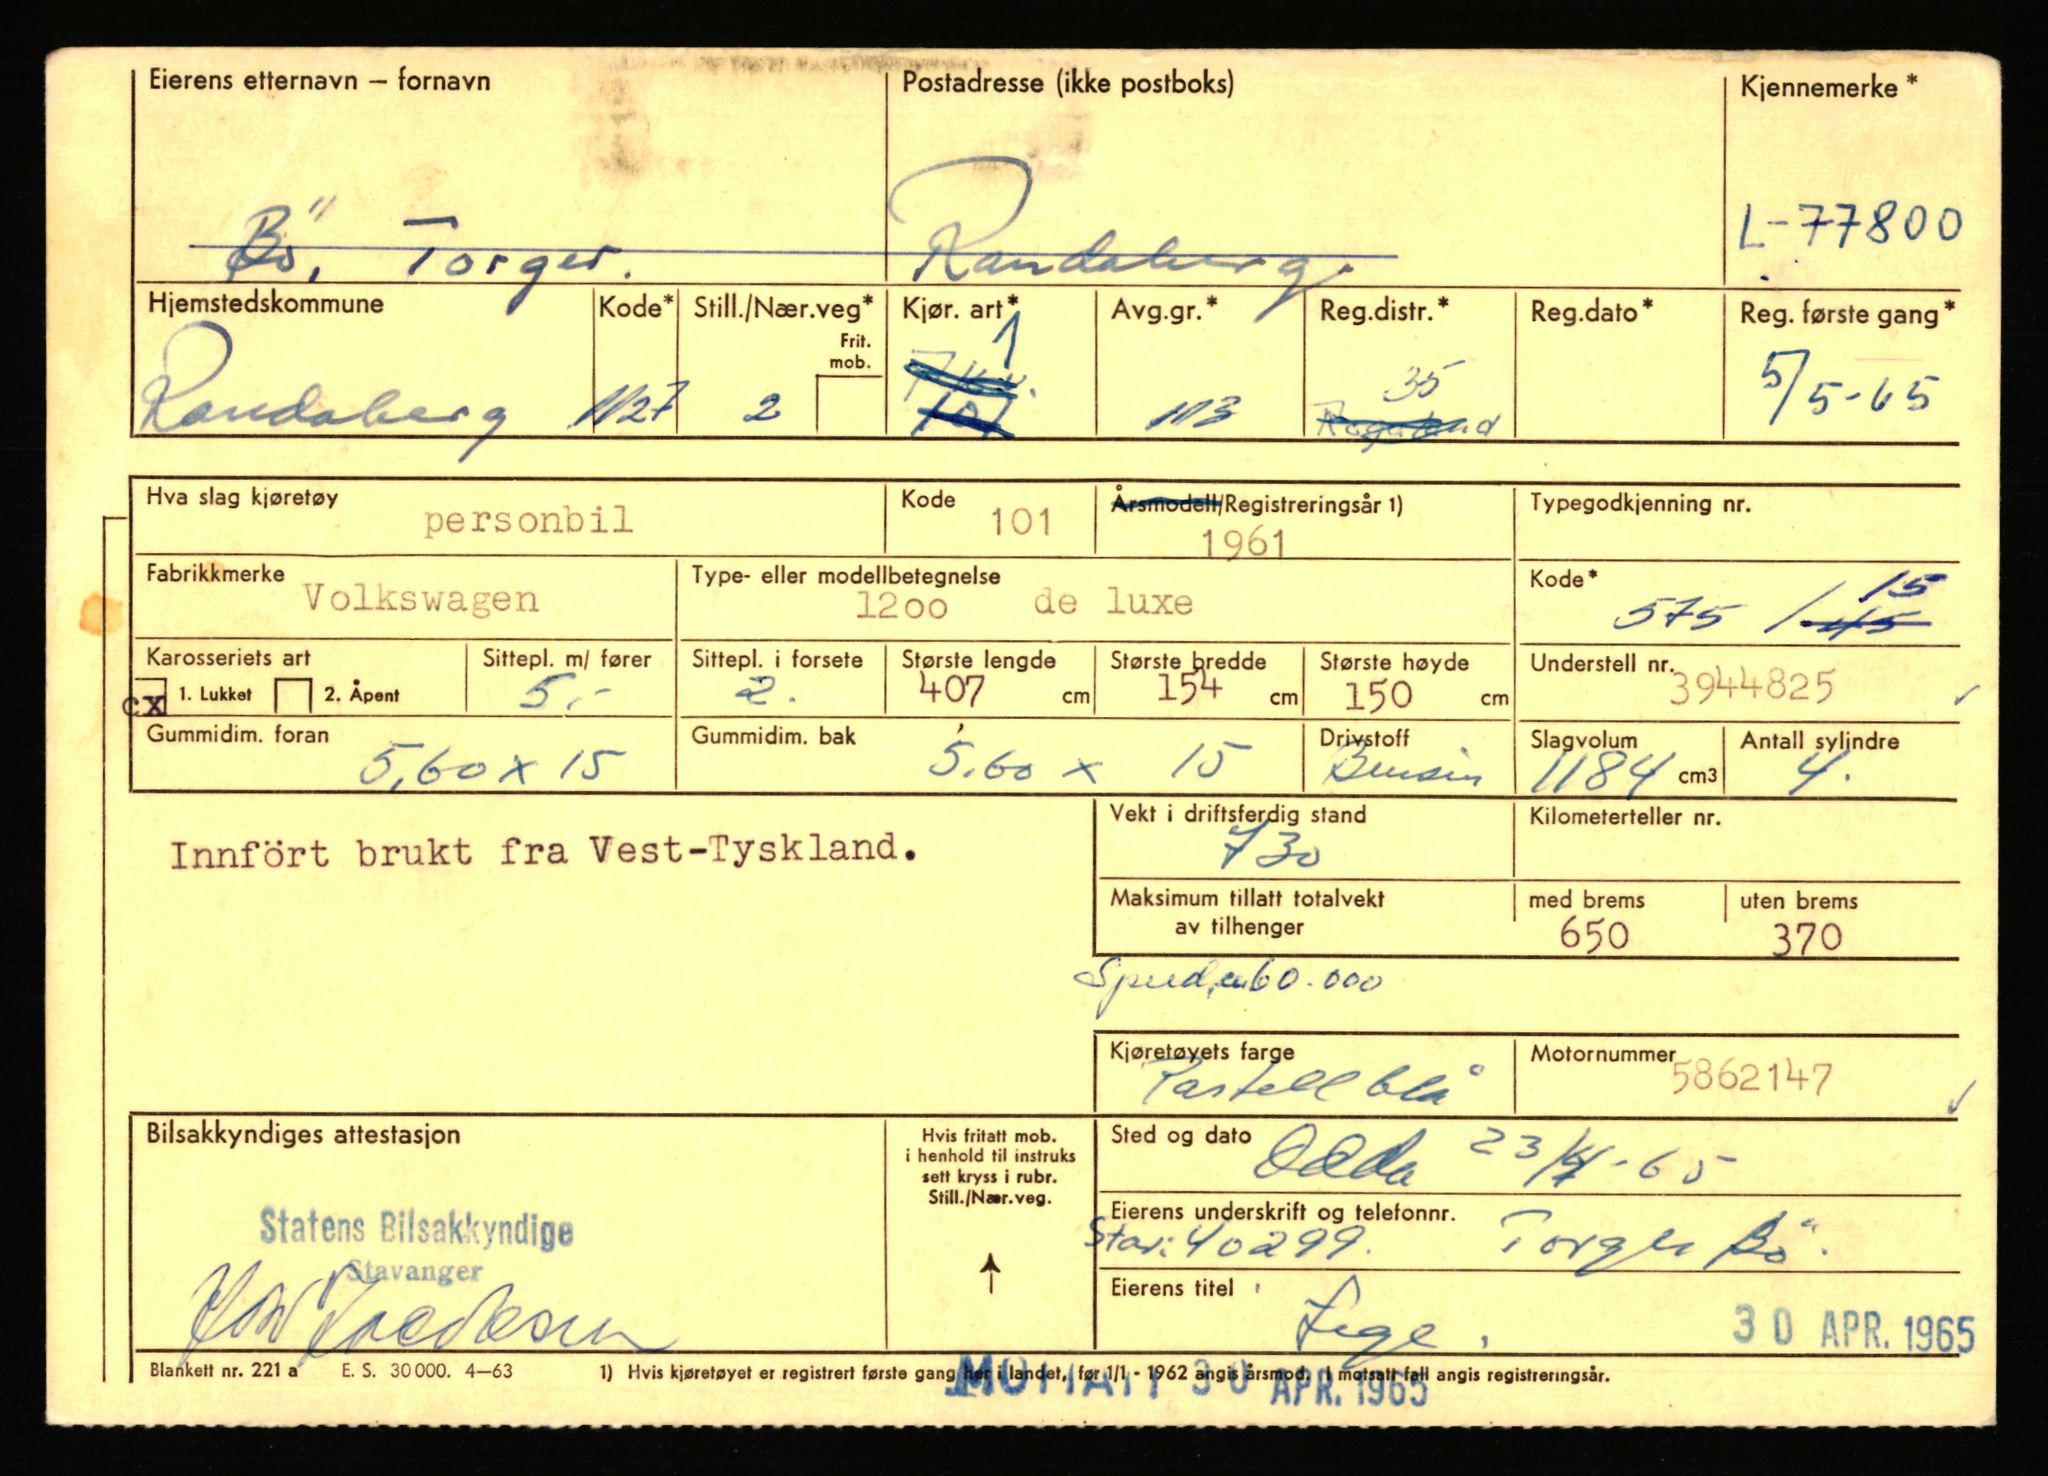 Eierens etternavn – fornavn Postadresse (ikke postboks) Kjennemerke*
Bö, Torger. Randaberg. L-77800
Hjemstedskommune Kode* Still./Nær.veg* Kjør. art* Avg.gr.* Reg.distr.* Reg.dato* Reg. første gang*
Frit. mob.
Randaberg 1127 2 1 113 35 5/5-65
101 Rogaland
Hva slag kjøretøy Kode Årsmodell/Registreringsår 1) Typegodkjenning nr.
personbil 101 1961
Fabrikkmerke Type- eller modellbetegnelse Kode*
Volkswagen 1200 de luxe 575 / 45 15
Karosseriets art Sittepl. m/ fører Sittepl. i forsete Største lengde Største bredde Største høyde Understell nr.
cx 1. Lukket 2. Åpent 5.- 2. 407 cm 154 cm 150 cm 3944825
Gummidim. foran Gummidim. bak Drivstoff Slagvolum Antall sylindre
5,60 x 15 5.60 x 15 Bensin 1184 cm3 4.
Innfört brukt fra Vest-Tyskland.
Vekt i driftsferdig stand Kilometerteller nr.
730
Maksimum tillatt totalvekt av tilhenger med brems uten brems
650 370
60.000
Kjøretøyets farge Motornummer
Pastell blå 5862147
Bilsakkyndiges attestasjon
Hvis fritatt mob.
i henhold til instruks
sett kryss i rubr.
Still./Nær.veg.
Sted og dato Odda 23/4-65
Statens Bilsakkyndige
Stavanger
Eierens underskrift og telefonnr.
Stav: 40299. Torger Bö.
Eierens titel
30 APR. 1965
Blankett nr. 221 a E. S. 30 000. 4—63 1) Hvis kjøretøyet er registrert første gang her i landet, før 1/1 - 1962 angis årsmod. I motsatt fall angis registreringsår.
MOTTATT 30 APR. 1965